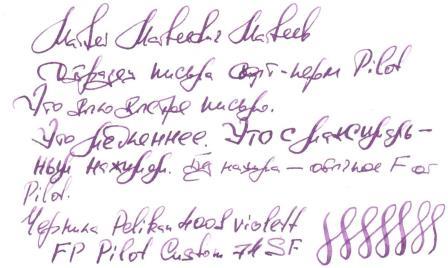 Матвей Матвеевич Матвеев
Образец письма софт-пером Pilot
Это было быстрое письмо.
Это медленнее. Это с максималь-
ным нажимом. Без нажима — обычное F от
Pilot.
Чернила Pelikan 4001 violett
FP Pilot Custom 74 SF